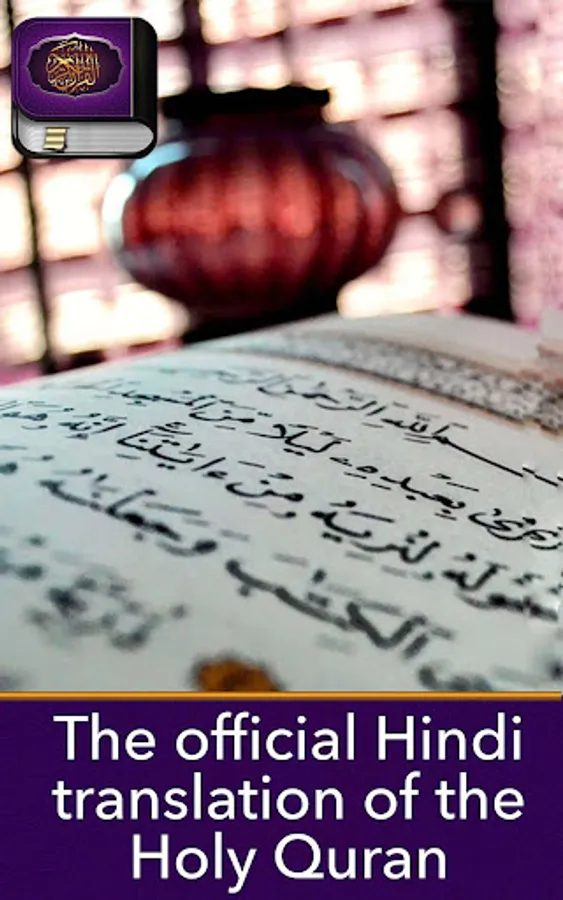 بِسْمِ اللَّهِ الرَّحْمَٰنِ الرَّحِيمِ
بِعَبْدِهِ لَيْلًا مِنَ الْمَسْجِدِ
حَوْلَهُ لِنُرِيَهُ مِنْ ءَايَٰتِنَا إِنَّهُ هُوَ
الْكِتَٰبَ وَجَعَلْنَٰهُ
The official Hindi
translation of the
Holy Quran